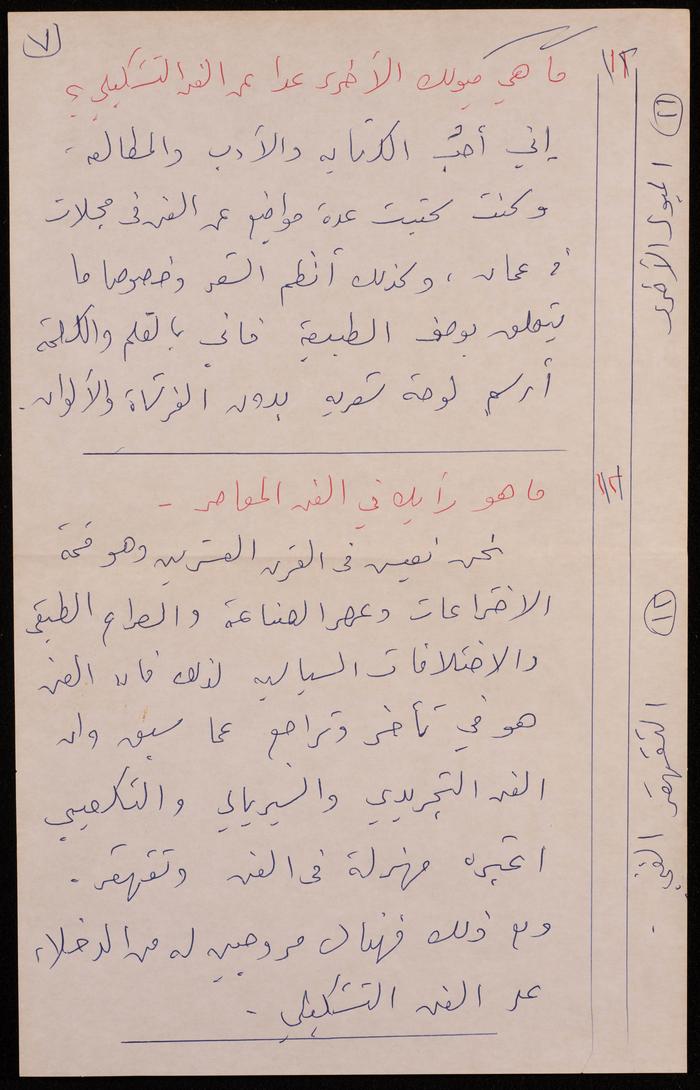 ٧
١١/ ما هي ميولك الأخرى عدا عن الفن التشكيلي؟
إني أحب الكتابه والأدب والمطالعه
وكنت كتبت عدة مواضيع عن الفن فى مجلات
في عمان ، وكذلك أنظم الشعر وخصوصا ما
يتعلق بوصف الطبيعة فاني بالقلم والكلمة
أرسم لوحة شعريه بدون الفرشاة والألوان .
١٢/ ما هو رأيك في الفن المعاصر -
نحن نعيش فى القرن العشرين وهو قمة
الاختراعات وعصر الصناعة والصراع الطبقي
والاختلافات السياسيه لذلك فان الفن
هو في تأخر وتراجع عما سبق وان
الفن التجريدي والسيريالي والتكعيبي
اعتبره مهزلة فى الفن وتقهقر .
ومع ذلك فهناك مروجين له من الدخلاء
عن الفن التشكيلي .
١١ الميول الأخرى
١٢ التقهقر الفني .